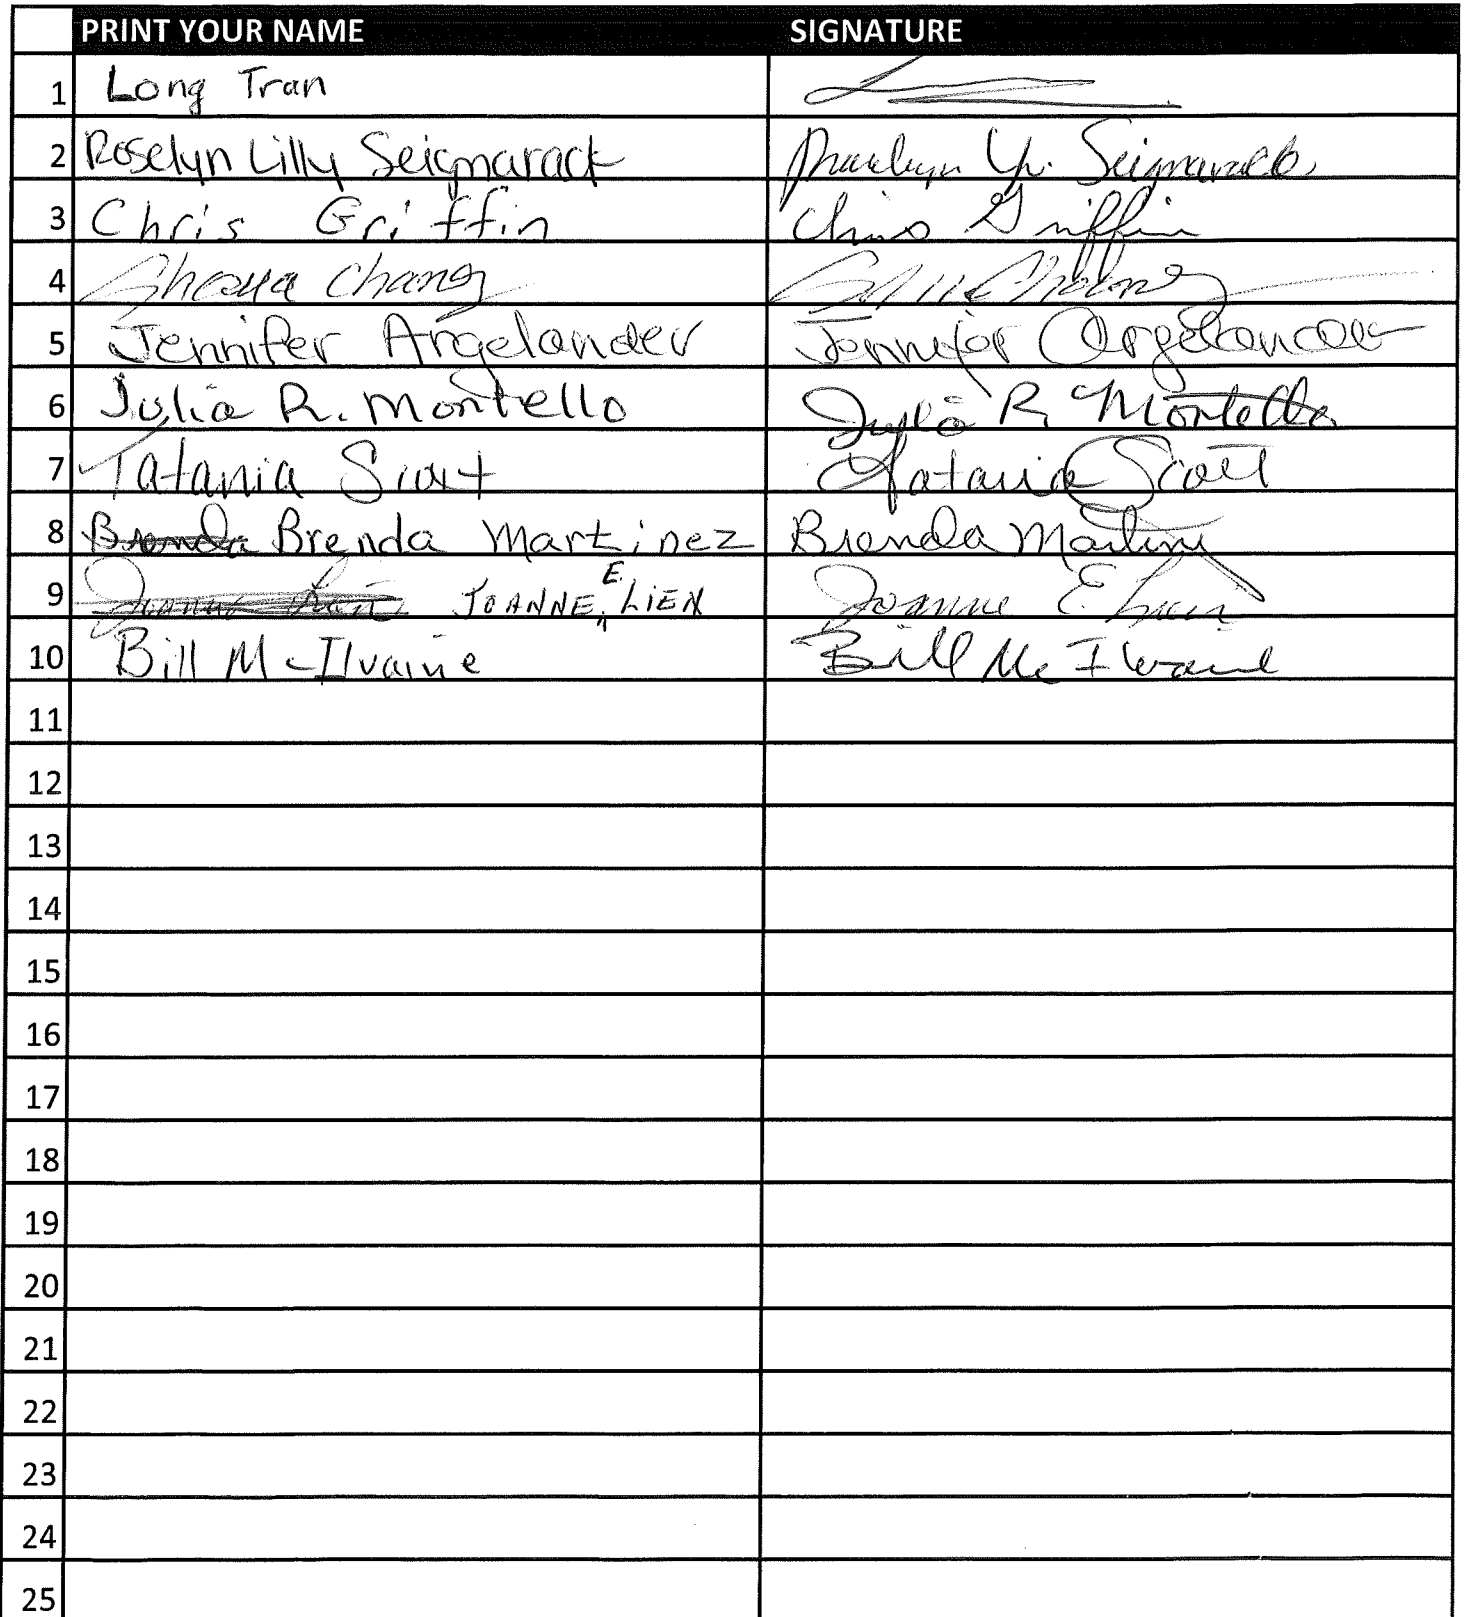 PRINT YOUR NAME SIGNATURE
1 Long Tran
2 Roselyn Lilly Seignarack Seignarack
3 Chris Griffin Chris Griffin
4 Chang
5 Jennifer Argelander Jennifer Argelander
6 Julia R. Montello Julia R. Montello
7 Tatania Scott Tatania Scott
8 Brenda Brenda Martinez Brenda Martinez
9 JOANNE E. LIEN Joanne E. Lien
10 Bill McIlvaine Bill McIlvaine
11
12
13
14
15
16
17
18
19
20
21
22
23
24
25